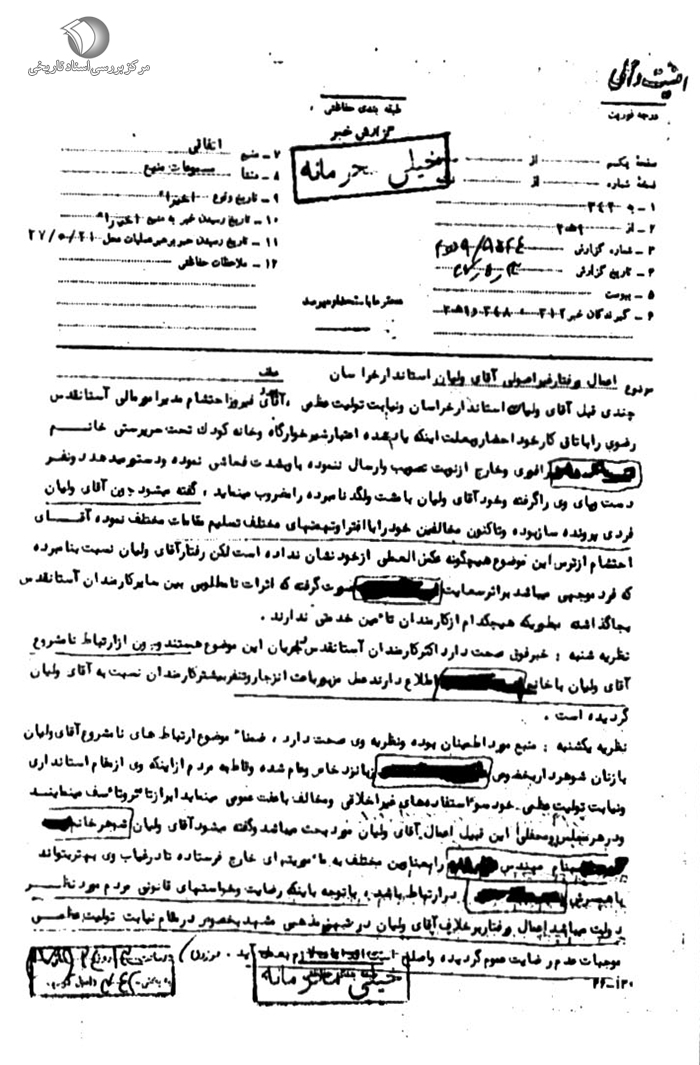 مرکز بررسی اسناد تاریخی
امنیت داخلی
درجه فوریت
طبقه بندی حفاظتی
گزارش خبر
خیلی محرمانه
صفحه یکم از
نسخه شماره از
۱ - به ۳۴۲
۲ - از ۹ ه‍ ۲
۳ - شماره گزارش
۴ - تاریخ گزارش
۵ - پیوست
۶ - گیرندگان خبر
۷ - منبع اتفاقی
۸ - منشأ مسموعات منبع
۹ - تاریخ وقوع اخیرا"
۱۰ - تاریخ رسیدن خبر به منبع اخیرا"
۱۱ - تاریخ رسیدن خبر برهبر عملیات محل
۱۲ - ملاحظات حفاظتی
محترما باستحضار میرسد
موضوع اعمال و رفتار غیر اصولی آقای ولیان استاندار خراسان
چندی قبل آقای ولیان استاندار خراسان و نیابت تولیت عظمی ، آقای فیروز احتشام مدیر امور مالی آستانقدس
رضوی را باتاق کار خود احضار و بعلت اینکه یاد شده اعتبار شیرخوارگاه و خانه کودک تحت سرپرستی خانم
را فوری و خارج از نوبت تصویب و ارسال ننموده با وی بشدت فحاشی نموده و دستور میدهد دو نفر
دست های وی را گرفته و خود آقای ولیان با مشت و لگد نامبرده را مضروب مینماید ، گفته میشود چون آقای ولیان
فردی پرونده ساز بوده و تاکنون مخالفین خود را با افترا و تهمتهای مختلف تسلیم مقامات مختلف نموده آقای
احتشام از ترس این موضوع هیچگونه عکس العملی از خود نشان نداده است لکن رفتار آقای ولیان نسبت بنامبرده
که فرد موجهی میباشد بر اثر سعایت صورت گرفته که اثرات نامطلوبی بین سایر کارمندان آستانقدس
بجا گذاشته بطوریکه هیچکدام از کارمندان تأمین خدمتی ندارند .
نظریه شنبه : خبر فوق صحت دارد اکثر کارمندان آستانقدس بجریان این موضوع هستند و چون از ارتباط نامشروع
آقای ولیان با خانم اطلاع دارند عمل مزبور باعث انزجار و تنفر بیشتر کارمندان نسبت به آقای ولیان
گردیده است .
نظریه یکشنبه : منبع مورد اطمینان بوده و نظریه وی صحت دارد ، ضمنا" موضوع ارتباط های نامشروع آقای ولیان
با زنان شوهردار بخصوص زبانزد خاص و عام شده و قاطبه مردم از اینکه وی از مقام استانداری
و نیابت تولیت عظمی خود سو٬ استفاده های غیر اخلاقی و مخالف با عفت عمومی مینماید ابراز تأثر و تأسف مینمایند
و در هر مجلس و محفلی این قبیل اعمال آقای ولیان مورد بحث میباشد و گفته میشود آقای ولیان شوهر خانم
بنام مهندس را بعناوین مختلف به مأموریتهای خارج فرستاده تا در غیاب وی بهتر بتواند
با همسرش در ارتباط باشد ، با توجه باینکه رضایت و خواستهای قانونی مردم مورد نظر
دولت میباشد اعمال و رفتار بر خلاف آقای ولیان در شهر مذهبی مشهد بخصوص در مقام نیابت تولیت عظمی
موجبات عدم رضایت عموم گردیده و اصلح است
خیلی محرمانه
۲۶-۱۳۰